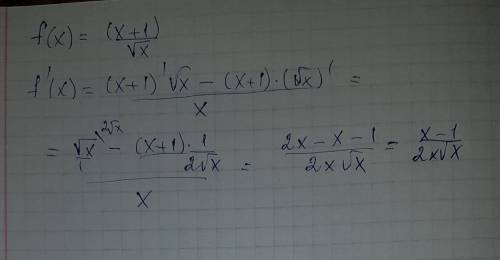 f(x) = (x+1)/√x
f'(x) = ((x+1)'√x − (x+1)·(√x)')/x =
= (√x/1^{2√x} − (x+1)·1/(2√x))/x = (2x−x−1)/(2x√x) = (x−1)/(2x√x)